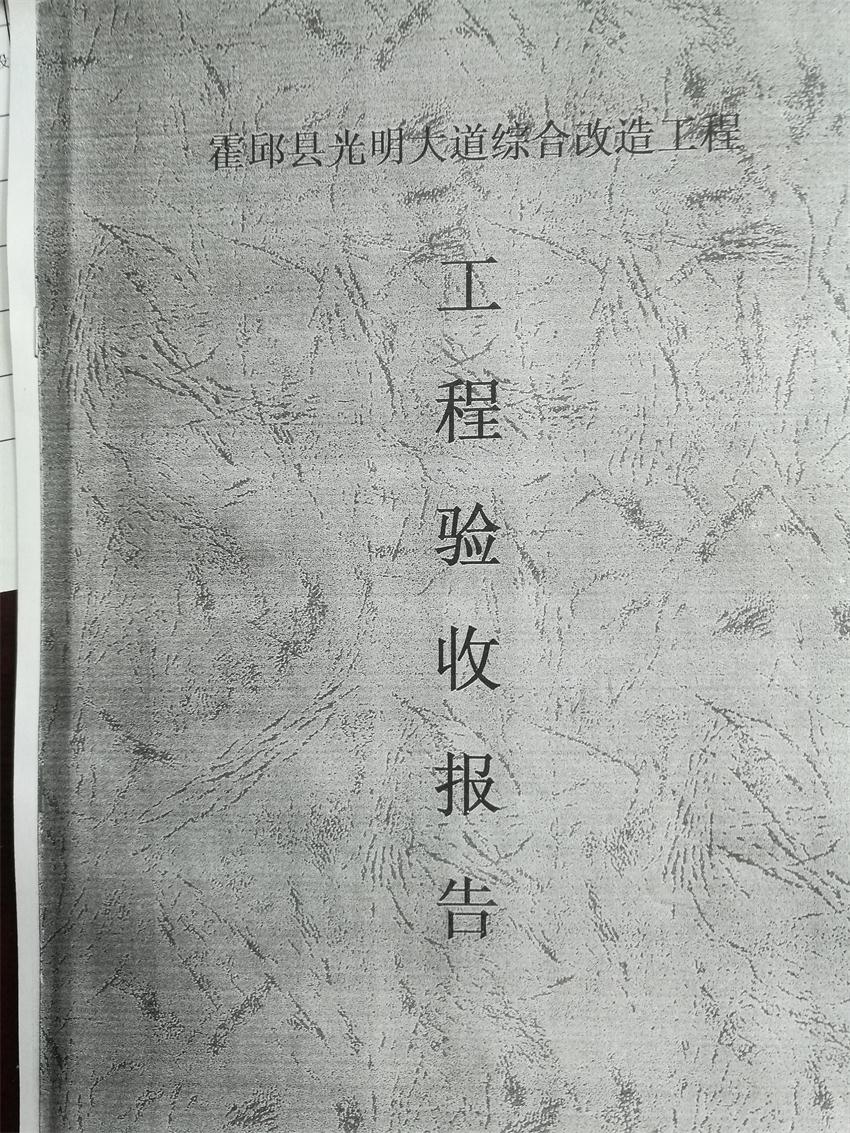 霍邱县光明大道综合改造工程
工程验收报告